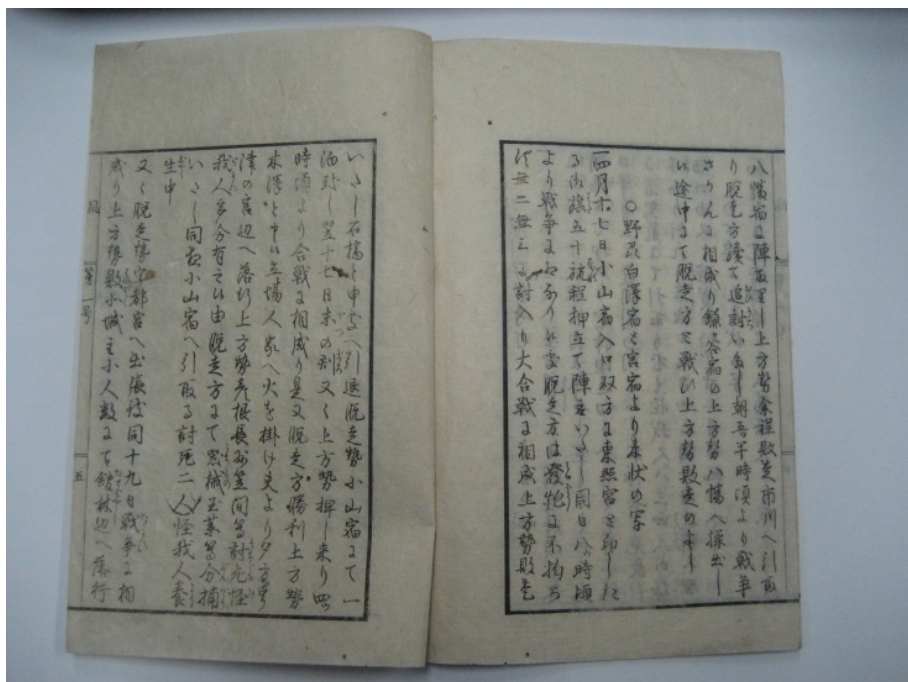 八幡宿に陣取里し上方勢余程敗走市川へ引取
り脱走方続て追討いたし朝五半時頃より戦争
さかんに相成り鎌ヶ谷宿の上方勢八幡へ操出し
い途中にて脱走方と戦ひ上方勢敗走のよし
○野州白澤宿と宮宿より来状の写
一四月十七日小山宿入口双方に東照宮と印した
る御旗五十流程押立て陣立いたし同日八ッ時頃
より戦争に相なり候処脱走方は發炮に不拘
無二無三に討入り大合戦に相成上方勢敗走
いたし石橋と申處へ引退脱走勢小山宿にて一
泊致し翌十七日未の刻又々上方勢押し来り四ッ
時頃より合戦に相成り是又脱走方勝利上方勢
木澤と申い立場人家へ火を掛け夫より夕方
津の宮辺へ落行上方勢彦根長州笠間等討死怪
我人多分有之い由脱走方にて器械玉薬等分捕
いたし同夜小山宿へ引取る討死二人怪我人養
生中
又々脱走勢宇都宮へ出張致同十九日戦争に相
成り上方勢敗小城主小人数にて舘林辺へ落行
第一号
五